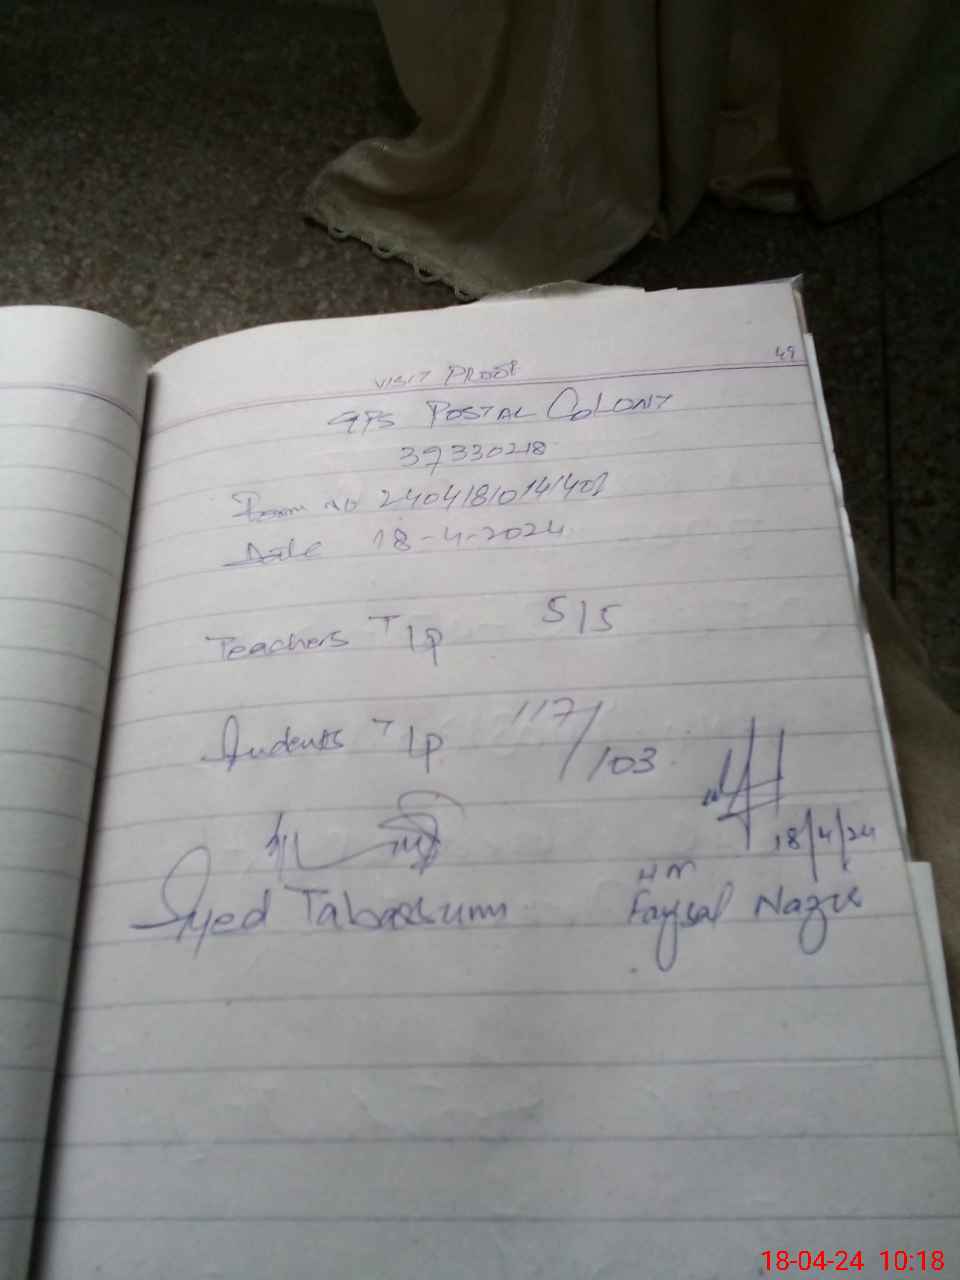 49
VISIT PROOF
GPS POSTAL COLONY
37330218
Form no 240418/014/401
Date 18-4-2024
Teachers T/P 5/5
Students T/P 117/103
18/4/24
HM
Syed Tabassum Faysal Nazir
18-04-24 10:18